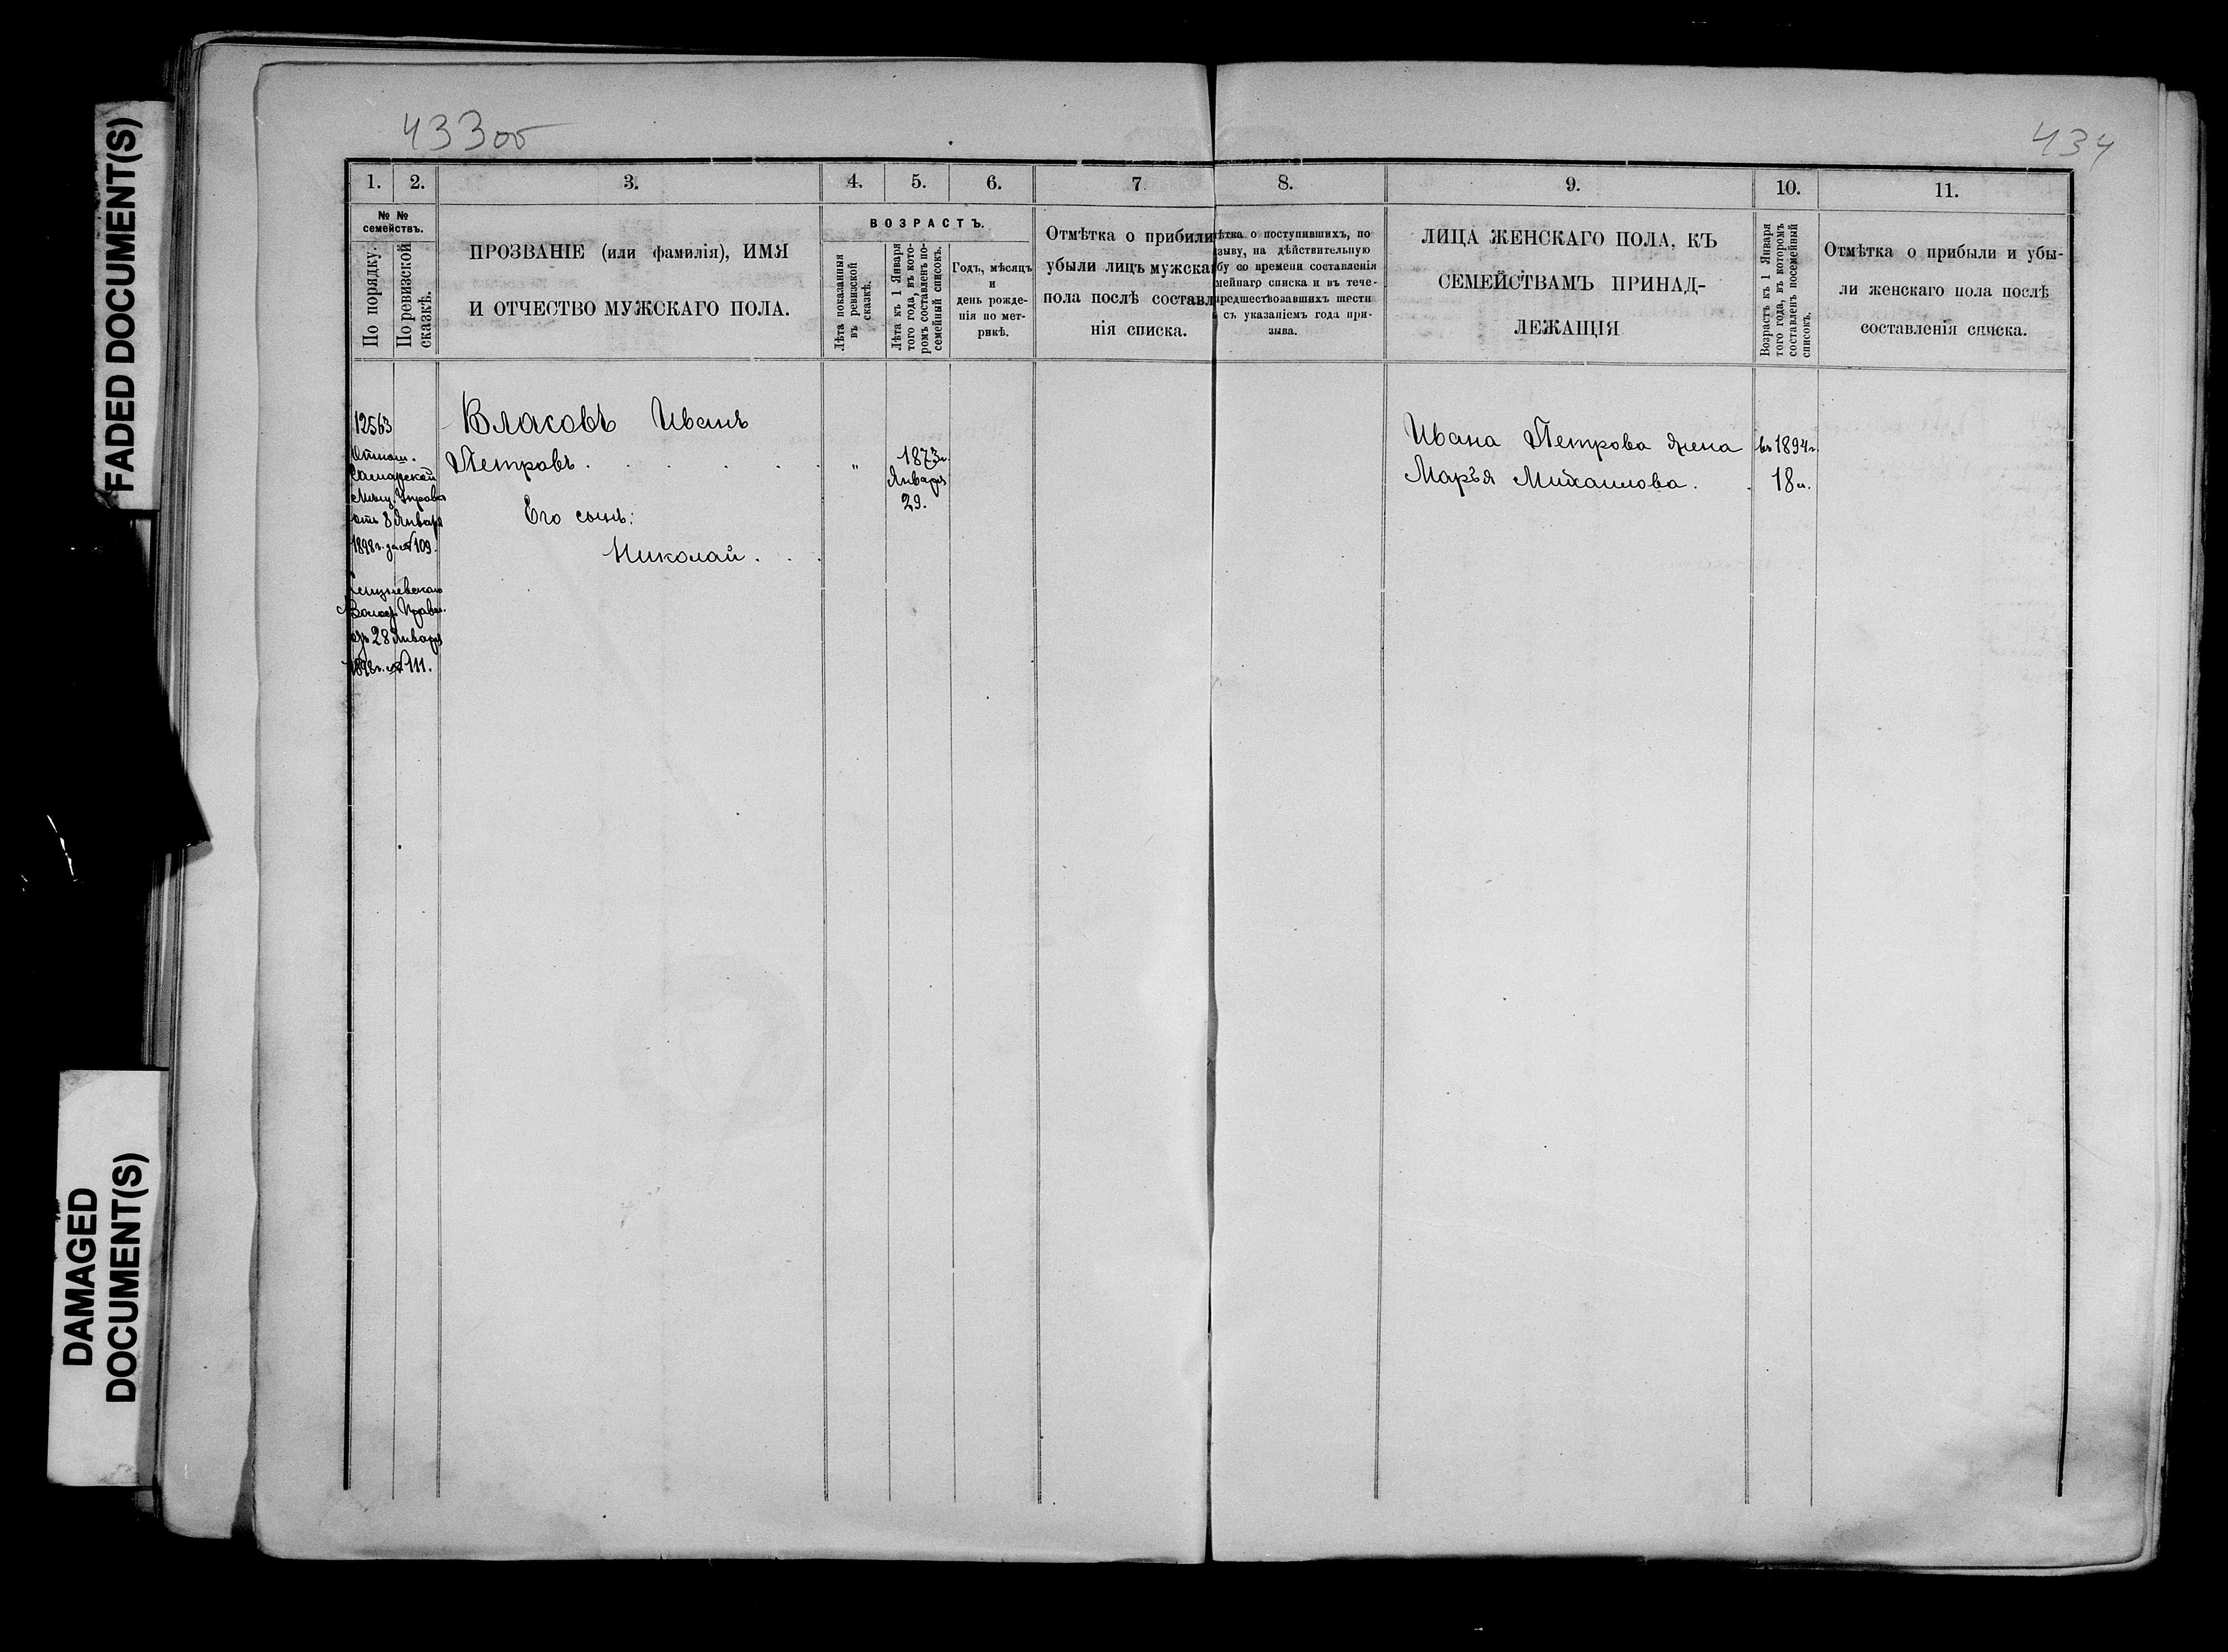 FADED DOCUMENT(S)
DAMAGED
DOCUMENT(S)
433об
434
1. 2. 3. 4. 5. 6. 7 8. 9. 10. 11.
№ №
семействъ.
По порядку.
По ревизской
сказкѣ.
ПРОЗВАНІЕ (или фамилія), ИМЯ
И ОТЧЕСТВО МУЖСКАГО ПОЛА.
ВОЗРАСТЪ.
Лѣта показанныя
въ ревизской
сказкѣ.
Лѣта къ 1 Января
того года, въ кото-
ромъ составленъ по-
семейный списокъ.
Годъ, мѣсяцъ
и
день рожде-
нія по мет-
рикѣ.
Отмѣтка о прибыли
убыли лицъ мужска
пола послѣ составл
нія списка.
ѣтка о поступившихъ, по
зыву, на дѣйствительную
бу со времени составленія
мейнаго списка и въ тече-
предшествовавшихъ шести
съ указаніемъ года при-
зыва.
ЛИЦА ЖЕНСКАГО ПОЛА, КЪ
СЕМЕЙСТВАМЪ ПРИНАД-
ЛЕЖАЩІЯ
Возрастъ къ 1 Января
того года, въ которомъ
составленъ посемейный
списокъ.
Отмѣтка о прибыли и убы-
ли женскаго пола послѣ
составленія списка.
12563
Отнош.
Самарской
Мѣщ. Управы
отъ 8 Января
1898г. за № 109.
Волос. Правл.
28 Января
1898г. № 111.
Власовъ Иванъ
Петровъ . . . . . „
1873г.
Января
29.
Его сынъ:
Николай . . .
Ивана Петрова жена
Марья Михаилова. .
въ 1894г.
18 л.